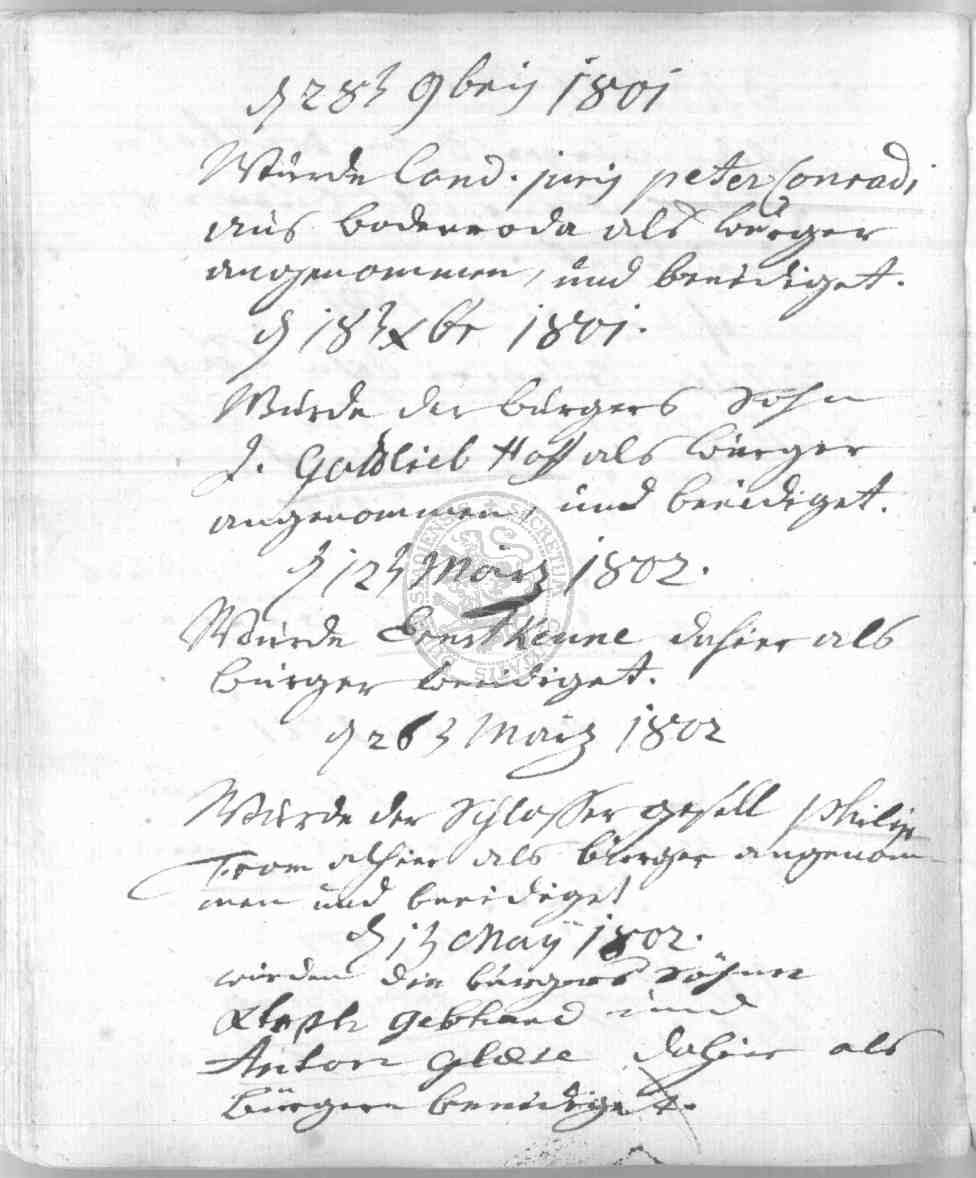 d 28t 9breis 1801
Würde Cand. juris peter Conradi
aus bodenroda als bürger
angenommen, und beeidiget.
d 18t xbr 1801.
Würde der bürgers Sohn
J. Gottlieb Hoff als bürger
angenommen, und beeidiget.
d 12t März 1802.
Würde Ernst Keune dahier als
bürger beeidiget.
d 26t März 1802
Würde der Schlosser gesell philip
Trom alhier als bürger angenom-
men und beeidiget
d 1t May 1802.
würden die bürgers Söhne
Gebhard und
Anton dahier als
bürgere beeidiget.